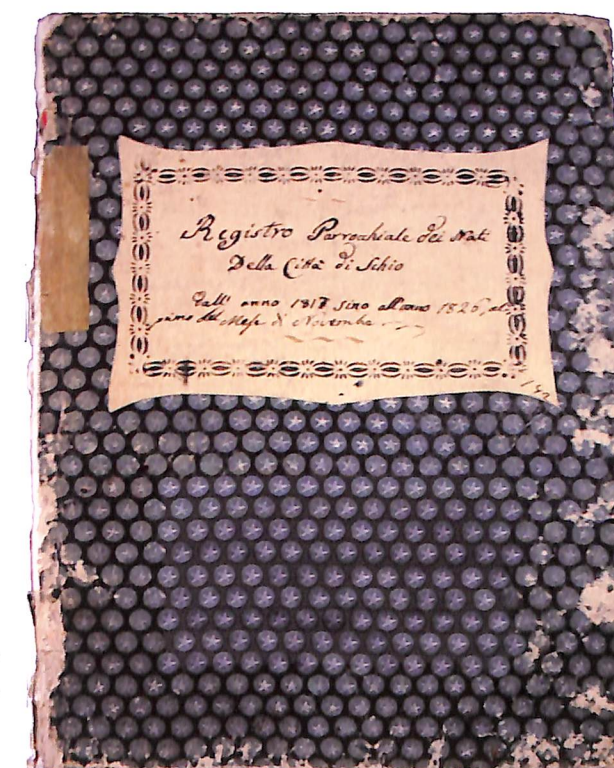 Registro Parrochiale dei Nati
Della Città di Schio
dall' anno 1817 sino all'anno 1826, al
primo del Mese di Novembre